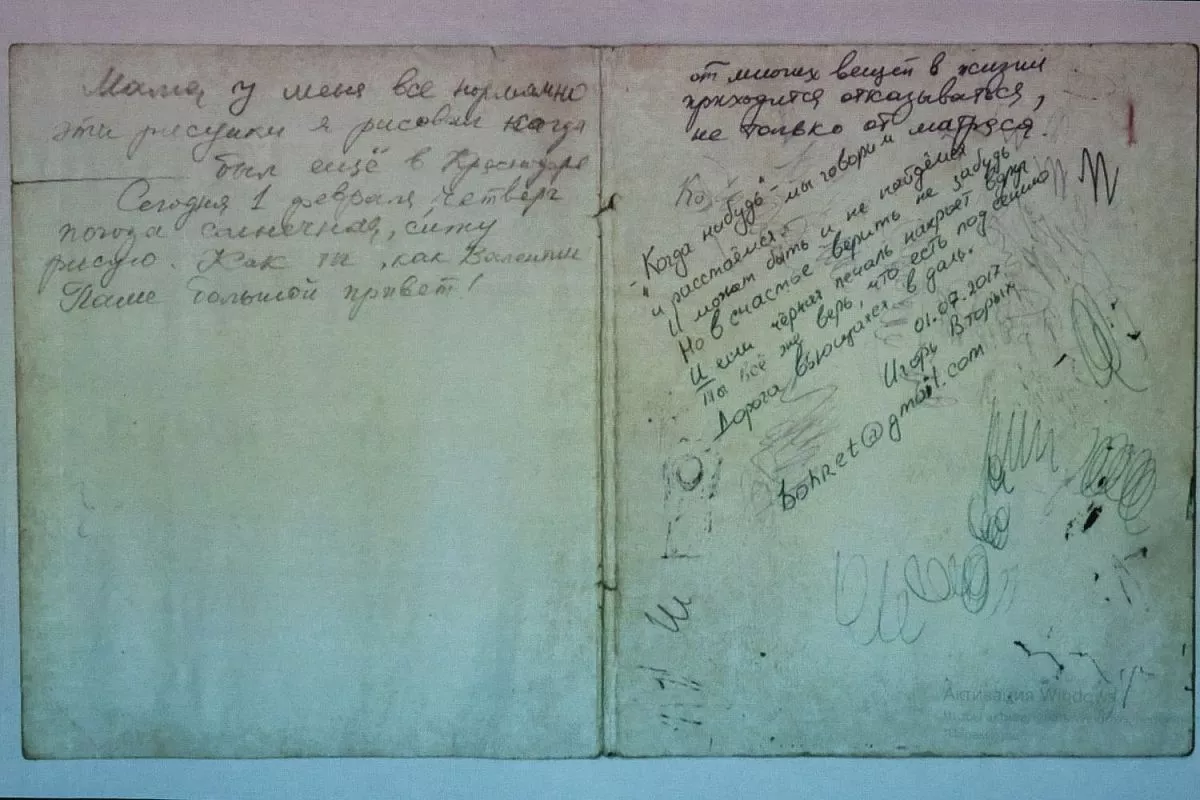 Мама, у меня все нормально
эти рисунки я рисовал когда
был ещё в Краснодаре
Сегодня 1 февраля, четверг
погода солнечная, сижу
рисую. Как ты, как Валентин
Папе большой привет!
от многих вещей в жизни
приходится отказываться,
не только от матраса.
Ко
"Когда нибудь" мы говорим
и расстаёмся.
И может быть и не найдёмся
Но в счастье верить не забудь
И если чёрная печаль накроет вдруг
Ты всё же верь, что есть под сенью
Дорога вьющаяся в даль.
01.07.2017.
Игорь Вторых
bohret@gmail.com
Активация Windows